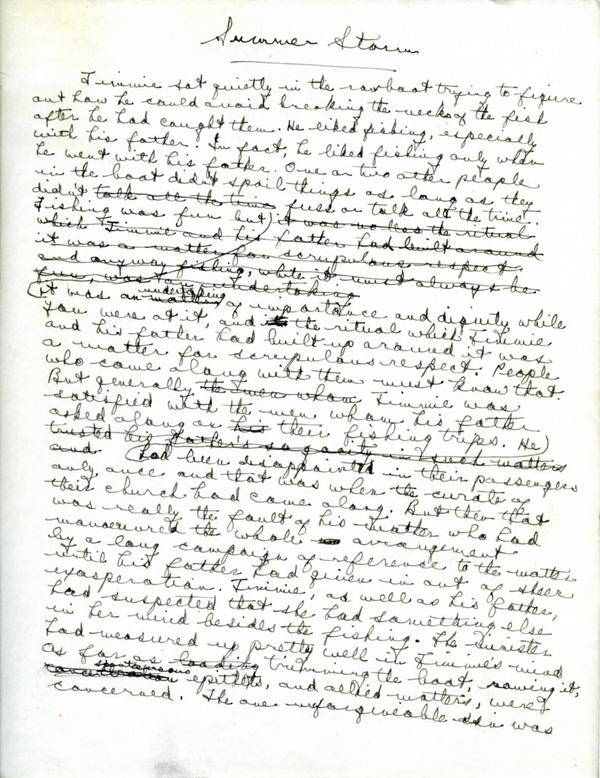 Summer Storm
Timmie sat quietly in the rowboat trying to figure
out how he could avoid breaking the necks of the fish
after he had caught them. He liked fishing, especially
with his father. In fact, he liked fishing only when
he went with his father. One or two other people
in the boat didn't spoil things as long as they
didn't talk all the time fuss or talk all the time.
Fishing was fun but it was no less the ritual
which Timmie and his father had built around
it was a matter for scrupulous respect.
and anyway fishing, while it must always be
fun, was an undertaking
it was an undertaking of importance and dignity while
you were at it, and the ritual which Timmie
and his father had built up around it was
a matter for scrupulous respect. People
who came along with them must know that.
But generally the men whom Timmie was
satisfied with the men whom his father
asked along on his their fishing trips. He
trusted his father's sagacity in such matters
and had been disappointed in their passengers
only once and that was when the curate of
their church had come along. But then that
was really the fault of his mother who had
manoeuvred the whole arrangement
by a long campaign of reference to the matter
until his father had given in out of sheer
exasperation. Timmie, as well as his father,
had suspected that she had something else
in her mind besides the fishing. The minister
had measured up pretty well in Timmie's mind
as far as loading trimming the boat, rowing it,
spontaneous epithets, and allied matters, were
concerned. The one unforgiveable sin was